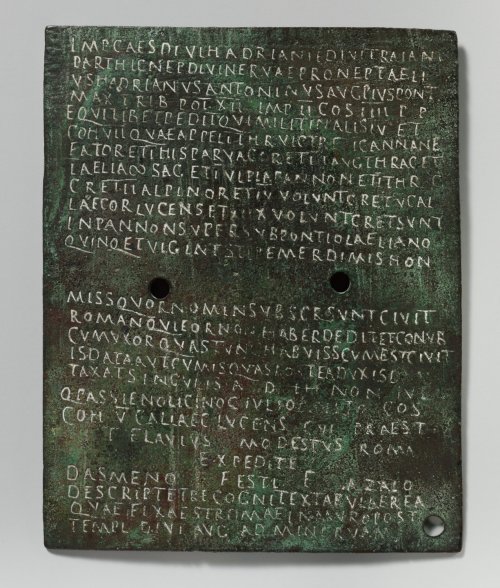 IMP CAES DIVI HADRIANI F DIVI TRAIANI
PARTHIC NEP DIVI NERVAE PRONEP T AELI
VS HADRIANVS ANTONINVS AVG PIVS PONT
MAX TRIB POT XII IMP II COS IIII P P
EQVITIB ET PEDIT QVI MILIT IN ALIS IV ET
COH VII QVAE APPEL I THR VICTR ET I CANNANE
FAT ORET I HISP ARVACORET III AVG THRAC ET
I AELIA SAG ET I VLP PANNON ET I THR C
CRET II ALPINOR ET IV VOLVNT C R ET V CAL
LAEC OR LVCENS ET XIIX VOLVNT C R ET SVNT
IN PANNON SVPER SVB PONTIO LAELIANO
QVINQ ET VIGINT STIP EMER DIMIS HON
MISS QVOR NOMIN SVBSCR SVNT CIVIT
ROMAN QVI EOR NON HABER DEDIT ET CONVB
CVM VXOR QVAS TVNC HABVISS CVM EST CIVIT
IS DATA AVT CVM IS QVAS POSTEA DVXIS D
TAXAT SINGVLIS A D III NON IVL
Q PASSIENO LICINO C IVLIO COS
COH V CALLAEC LVCENS CVI PRAEST
ELAVIVS MODESTVS ROMA
EX PEDITE
DASMENO FESTI F AZALO
DESCRIPT ET RECOGNIT EX TABVL AEREA
QVAE FIXA EST ROMAE IN MVRO POST
TEMPL DIVI AVG AD MINERVAM